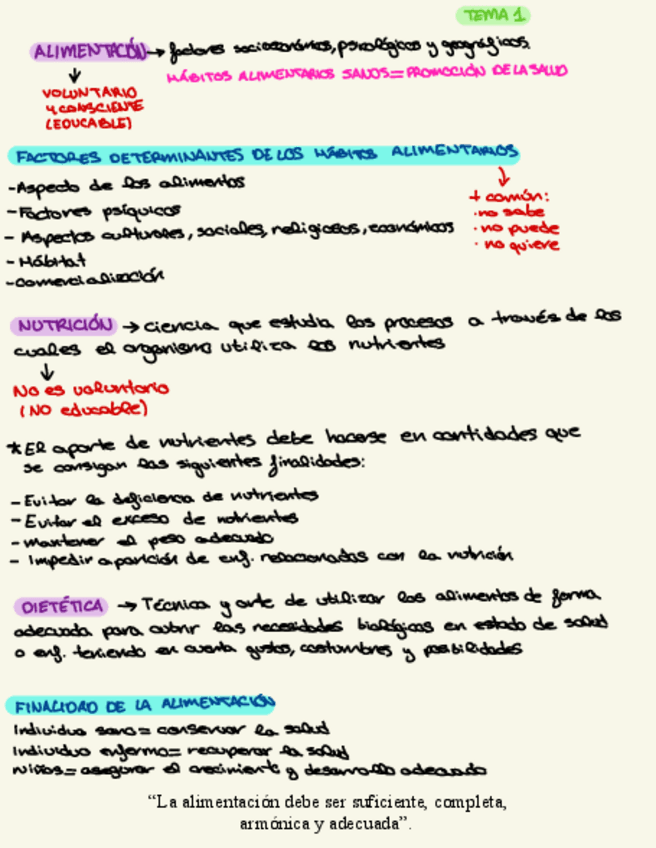 TEMA 1
ALIMENTACIÓN → factores socioeconómicos, psicológicos y geográficos.
HÁBITOS ALIMENTARIOS SANOS = PROMOCIÓN DE LA SALUD
VOLUNTARIO
Y CONSCIENTE
(EDUCABLE)
FACTORES DETERMINANTES DE LOS HÁBITOS ALIMENTARIOS
-Aspecto de los alimentos
-Factores psíquicos
- Aspectos culturales, sociales, religiosos, económicos
- Hábitat
-comercialización
+ común:
· no sabe
· no puede
· no quiere
NUTRICIÓN → ciencia que estudia los procesos a través de los
cuales el organismo utiliza los nutrientes
No es voluntario
(NO educable)
* El aporte de nutrientes debe hacerse en cantidades que
se consigan las siguientes finalidades:
- Evitar la deficiencia de nutrientes
- Evitar el exceso de nutrientes
- mantener el peso adecuado
- Impedir aparición de enf. relacionadas con la nutrición
DIETÉTICA → Técnica y arte de utilizar los alimentos de forma
adecuada para cubrir las necesidades biológicas en estado de salud
o enf. teniendo en cuenta gustos, costumbres y posibilidades
FINALIDAD DE LA ALIMENTACIÓN
Individuo sano = conservar la salud
Individuo enfermo = recuperar la salud
Niños = asegurar el crecimiento y desarrollo adecuado
“La alimentación debe ser suficiente, completa,
armónica y adecuada”.